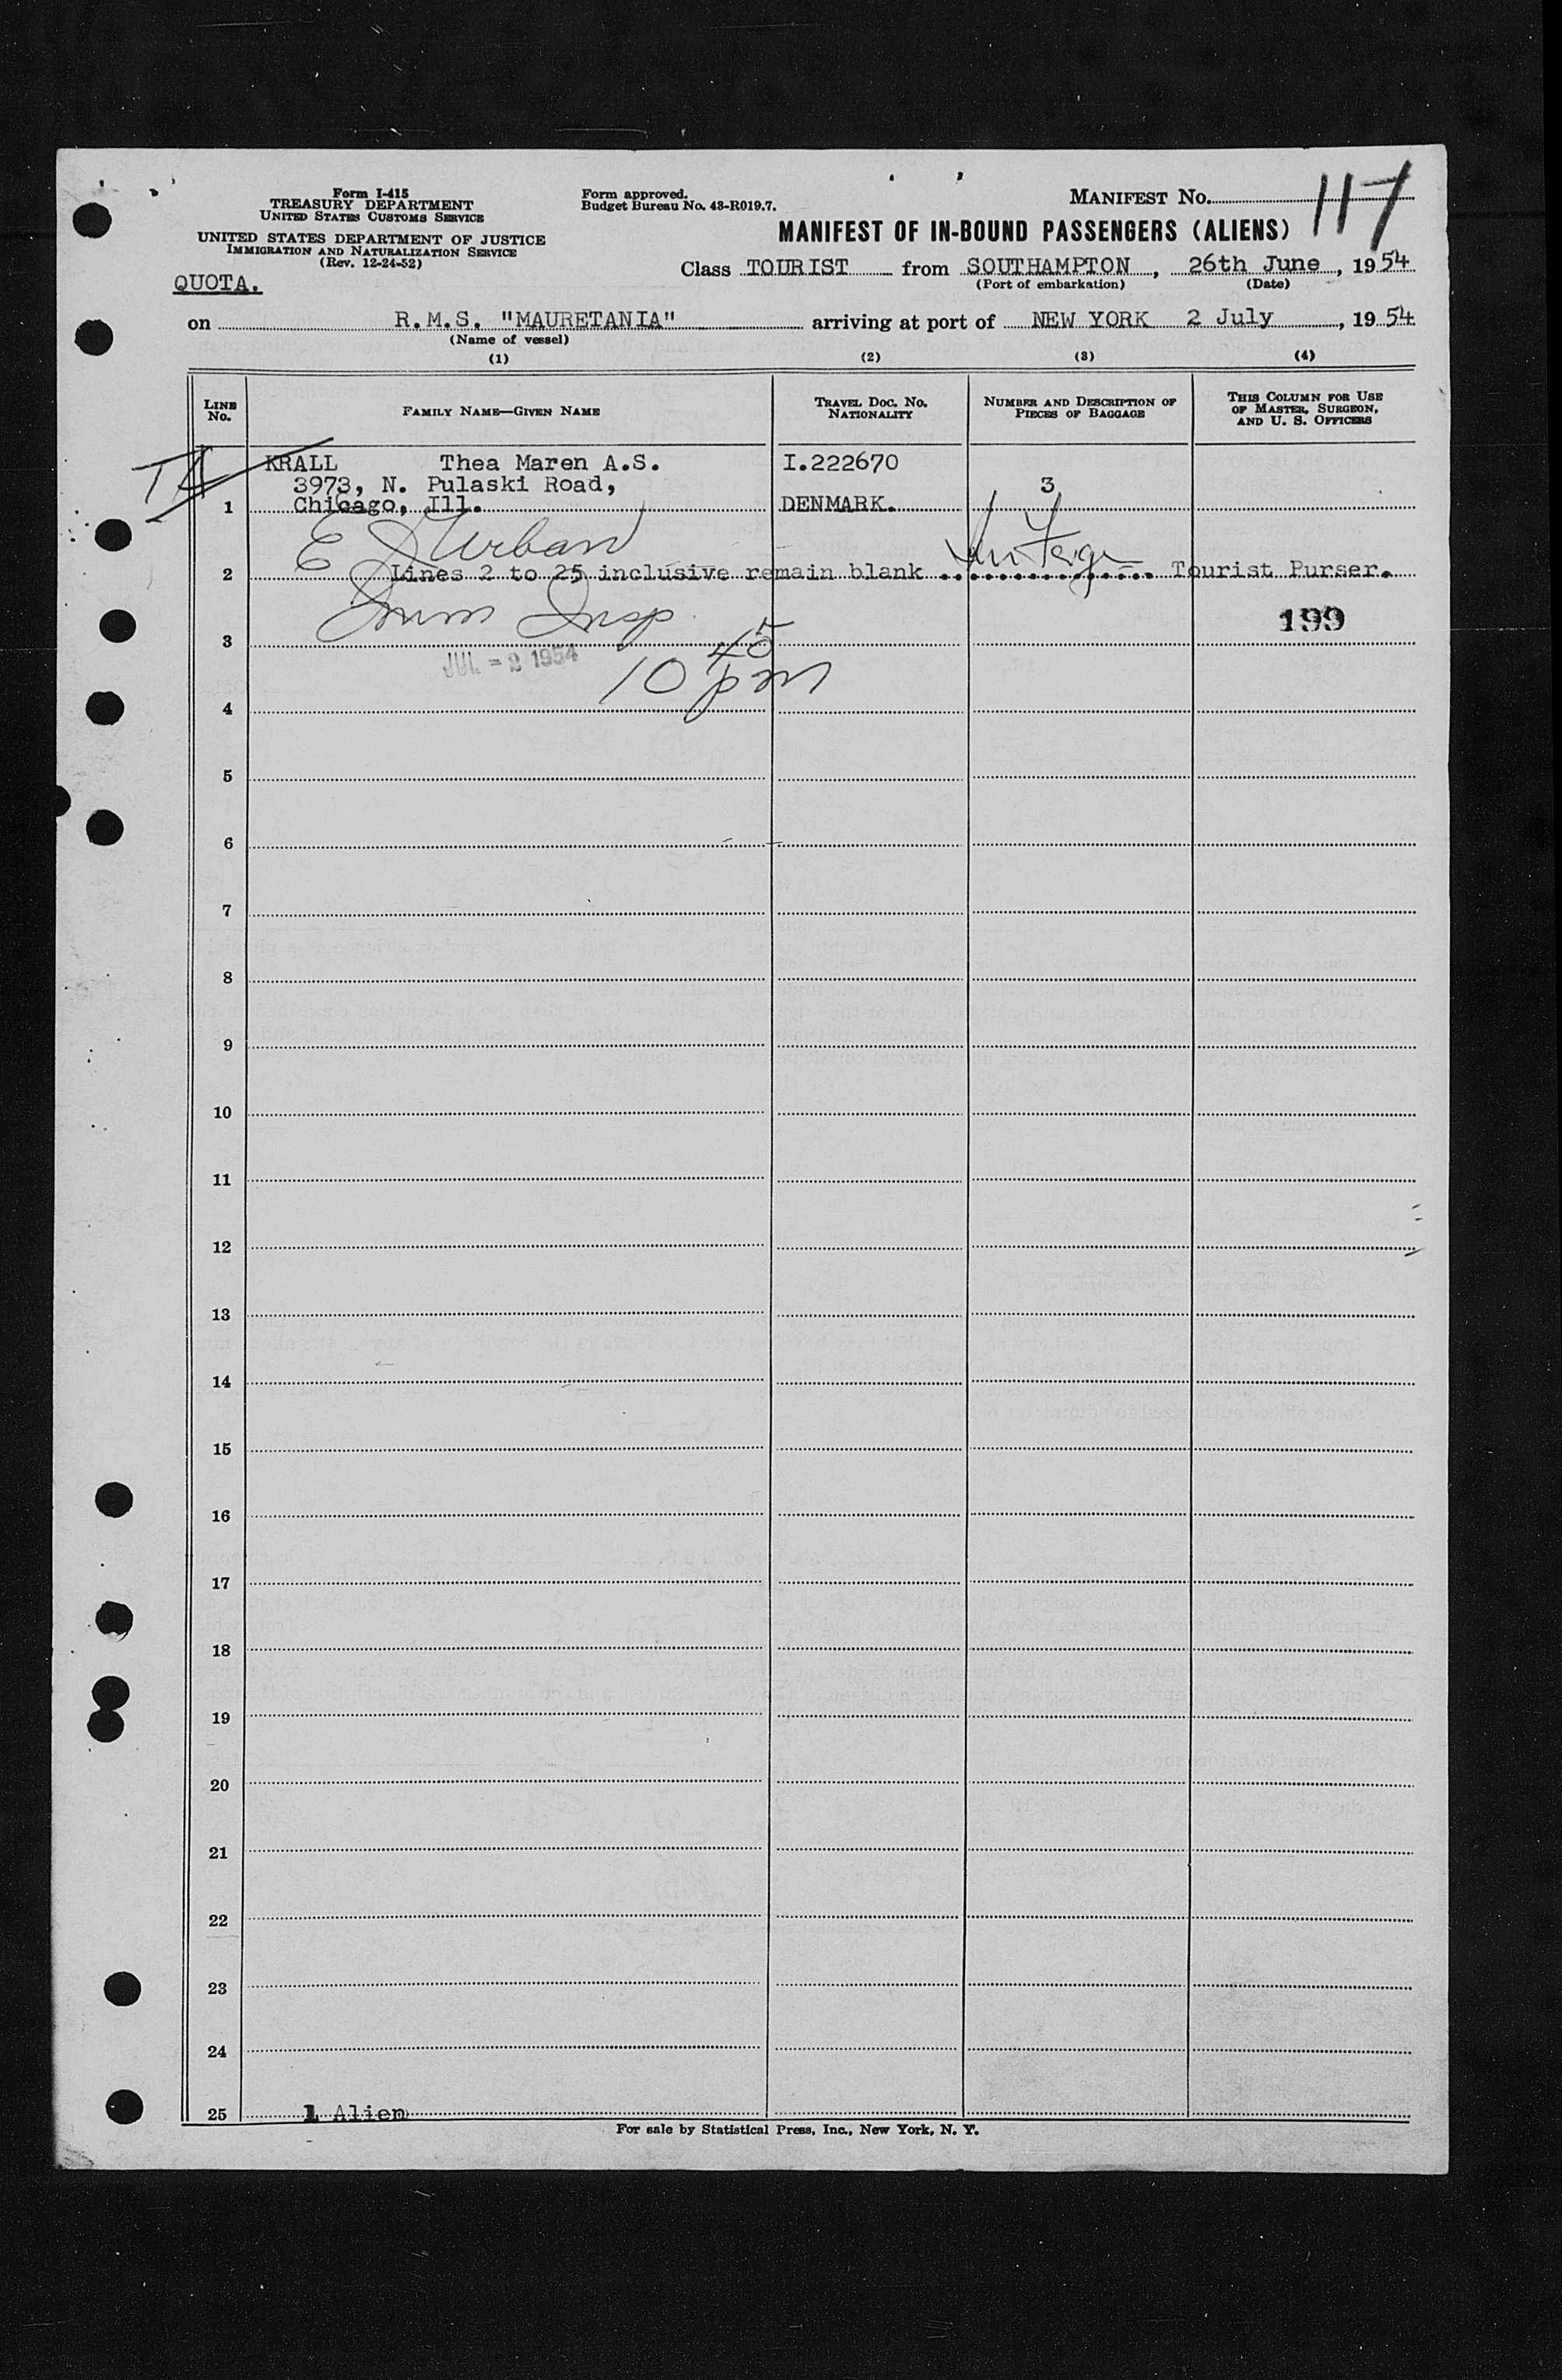 Form I-415
TREASURY DEPARTMENT
UNITED STATES CUSTOMS SERVICE
UNITED STATES DEPARTMENT OF JUSTICE
IMMIGRATION AND NATURALIZATION SERVICE
(Rev. 12-24-52)
QUOTA.
Form approved.
Budget Bureau No. 43-R019.7.
MANIFEST No. 117
MANIFEST OF IN-BOUND PASSENGERS (ALIENS)
Class TOURIST from SOUTHAMPTON, 26th June, 1954
(Port of embarkation) (Date)
on R.M.S. "MAURETANIA" arriving at port of NEW YORK 2 July, 1954
(Name of vessel)
(1) (2) (3) (4)
LINE No. FAMILY NAME—GIVEN NAME TRAVEL DOC. NO. NATIONALITY NUMBER AND DESCRIPTION OF PIECES OF BAGGAGE THIS COLUMN FOR USE OF MASTER, SURGEON, AND U. S. OFFICERS
KRALL Thea Maren A.S. I.222670
3973, N. Pulaski Road, 3
1 Chicago, Ill. DENMARK.
E Urban
2 Lines 2 to 25 inclusive remain blank Tourist Purser.
Imm Insp 199
3
JUL - 2 1954 10 45 pm
4
5
6
7
8
9
10
11
12
13
14
15
16
17
18
19
20
21
22
23
24
25 1 Alien
For sale by Statistical Press, Inc., New York, N. Y.